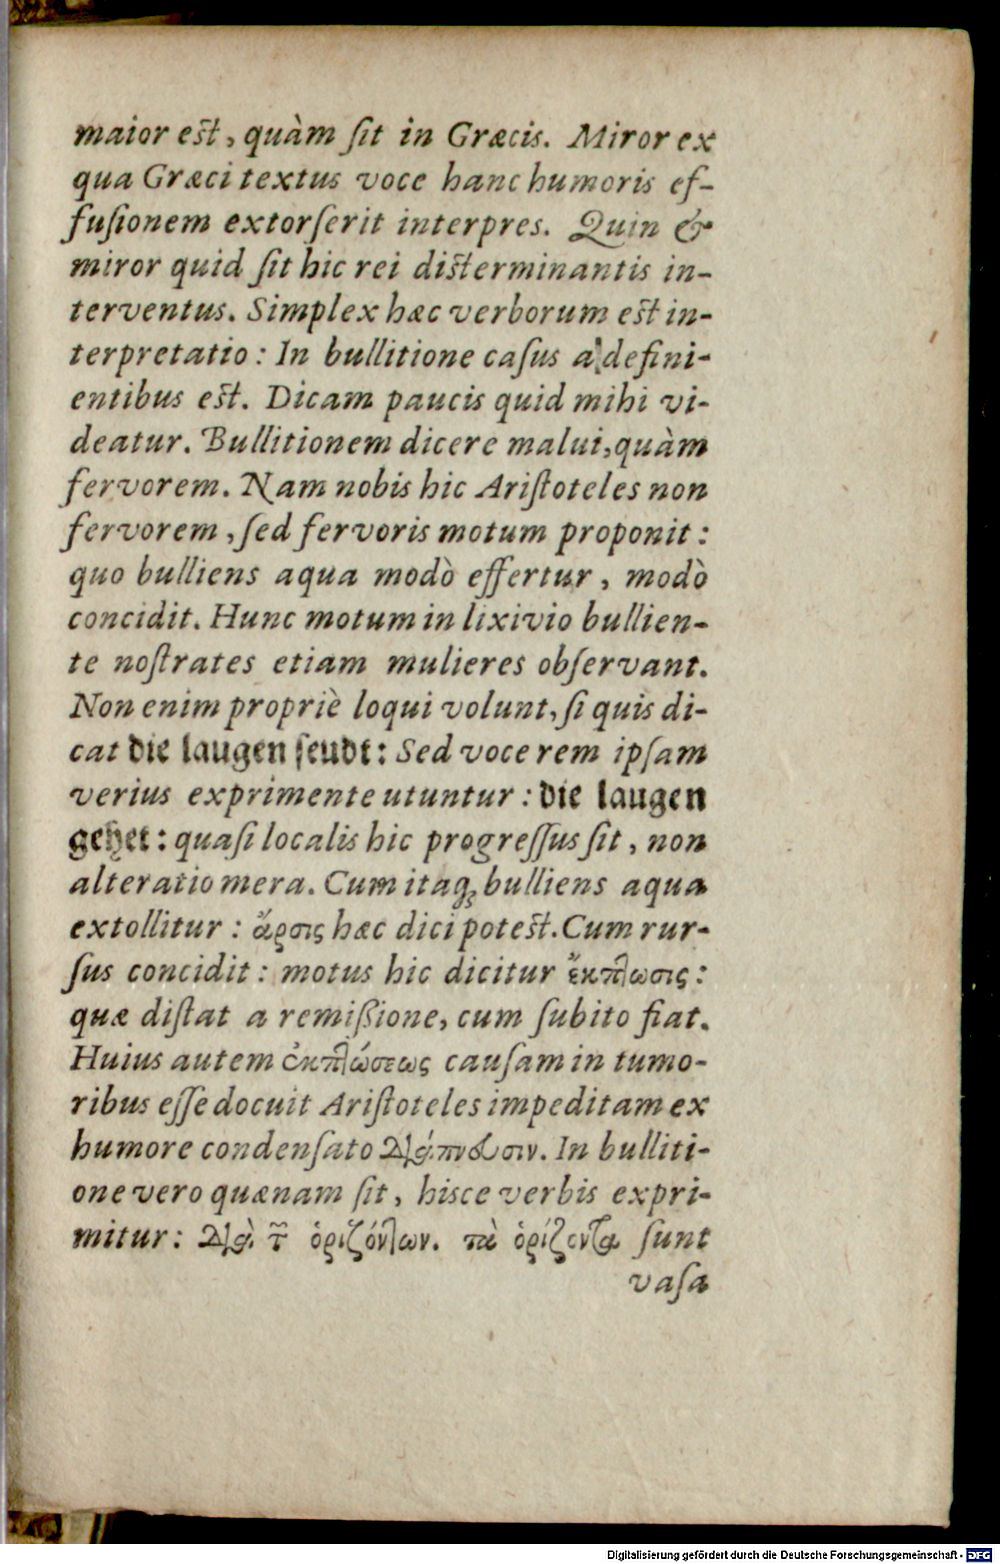 maior est, quàm ſit in Græcis. Miror ex
qua Græci textus voce hanc humoris ef-
fuſionem extorſerit interpres. Quin &
miror quid ſit hic rei disterminantis in-
terventus. Simplex hæc verborum est in-
terpretatio: In bullitione caſus a defini-
entibus est. Dicam paucis quid mihi vi-
deatur. Bullitionem dicere malui, quàm
fervorem. Nam nobis hic Ariſtoteles non
fervorem, ſed fervoris motum proponit:
quo bulliens aqua modò effertur, modò
concidit. Hunc motum in lixivio bullien-
te noſtrates etiam mulieres obſervant.
Non enim propriè loqui volunt, ſi quis di-
cat die laugen ſeudt: Sed voce rem ipſam
verius exprimente utuntur: die laugen
gehet: quaſi localis hic progreſſus ſit, non
alteratio mera. Cum itaq; bulliens aqua
extollitur: ἄρσις hæc dici potest. Cum rur-
ſus concidit: motus hic dicitur ἔκπλωσις:
quæ diſtat a remiſſione, cum ſubito fiat.
Huius autem ἐκπλώσεως cauſam in tumo-
ribus eſſe docuit Ariſtoteles impeditam ex
humore condenſato διάπνευσιν. In bulliti-
one vero quænam ſit, hisce verbis expri-
mitur: διὰ τ῀ ὁριζόντων. τὰ ὁρίζοντα ſunt
vaſa
Digitalisierung gefördert durch die Deutsche Forschungsgemeinschaft - DFG